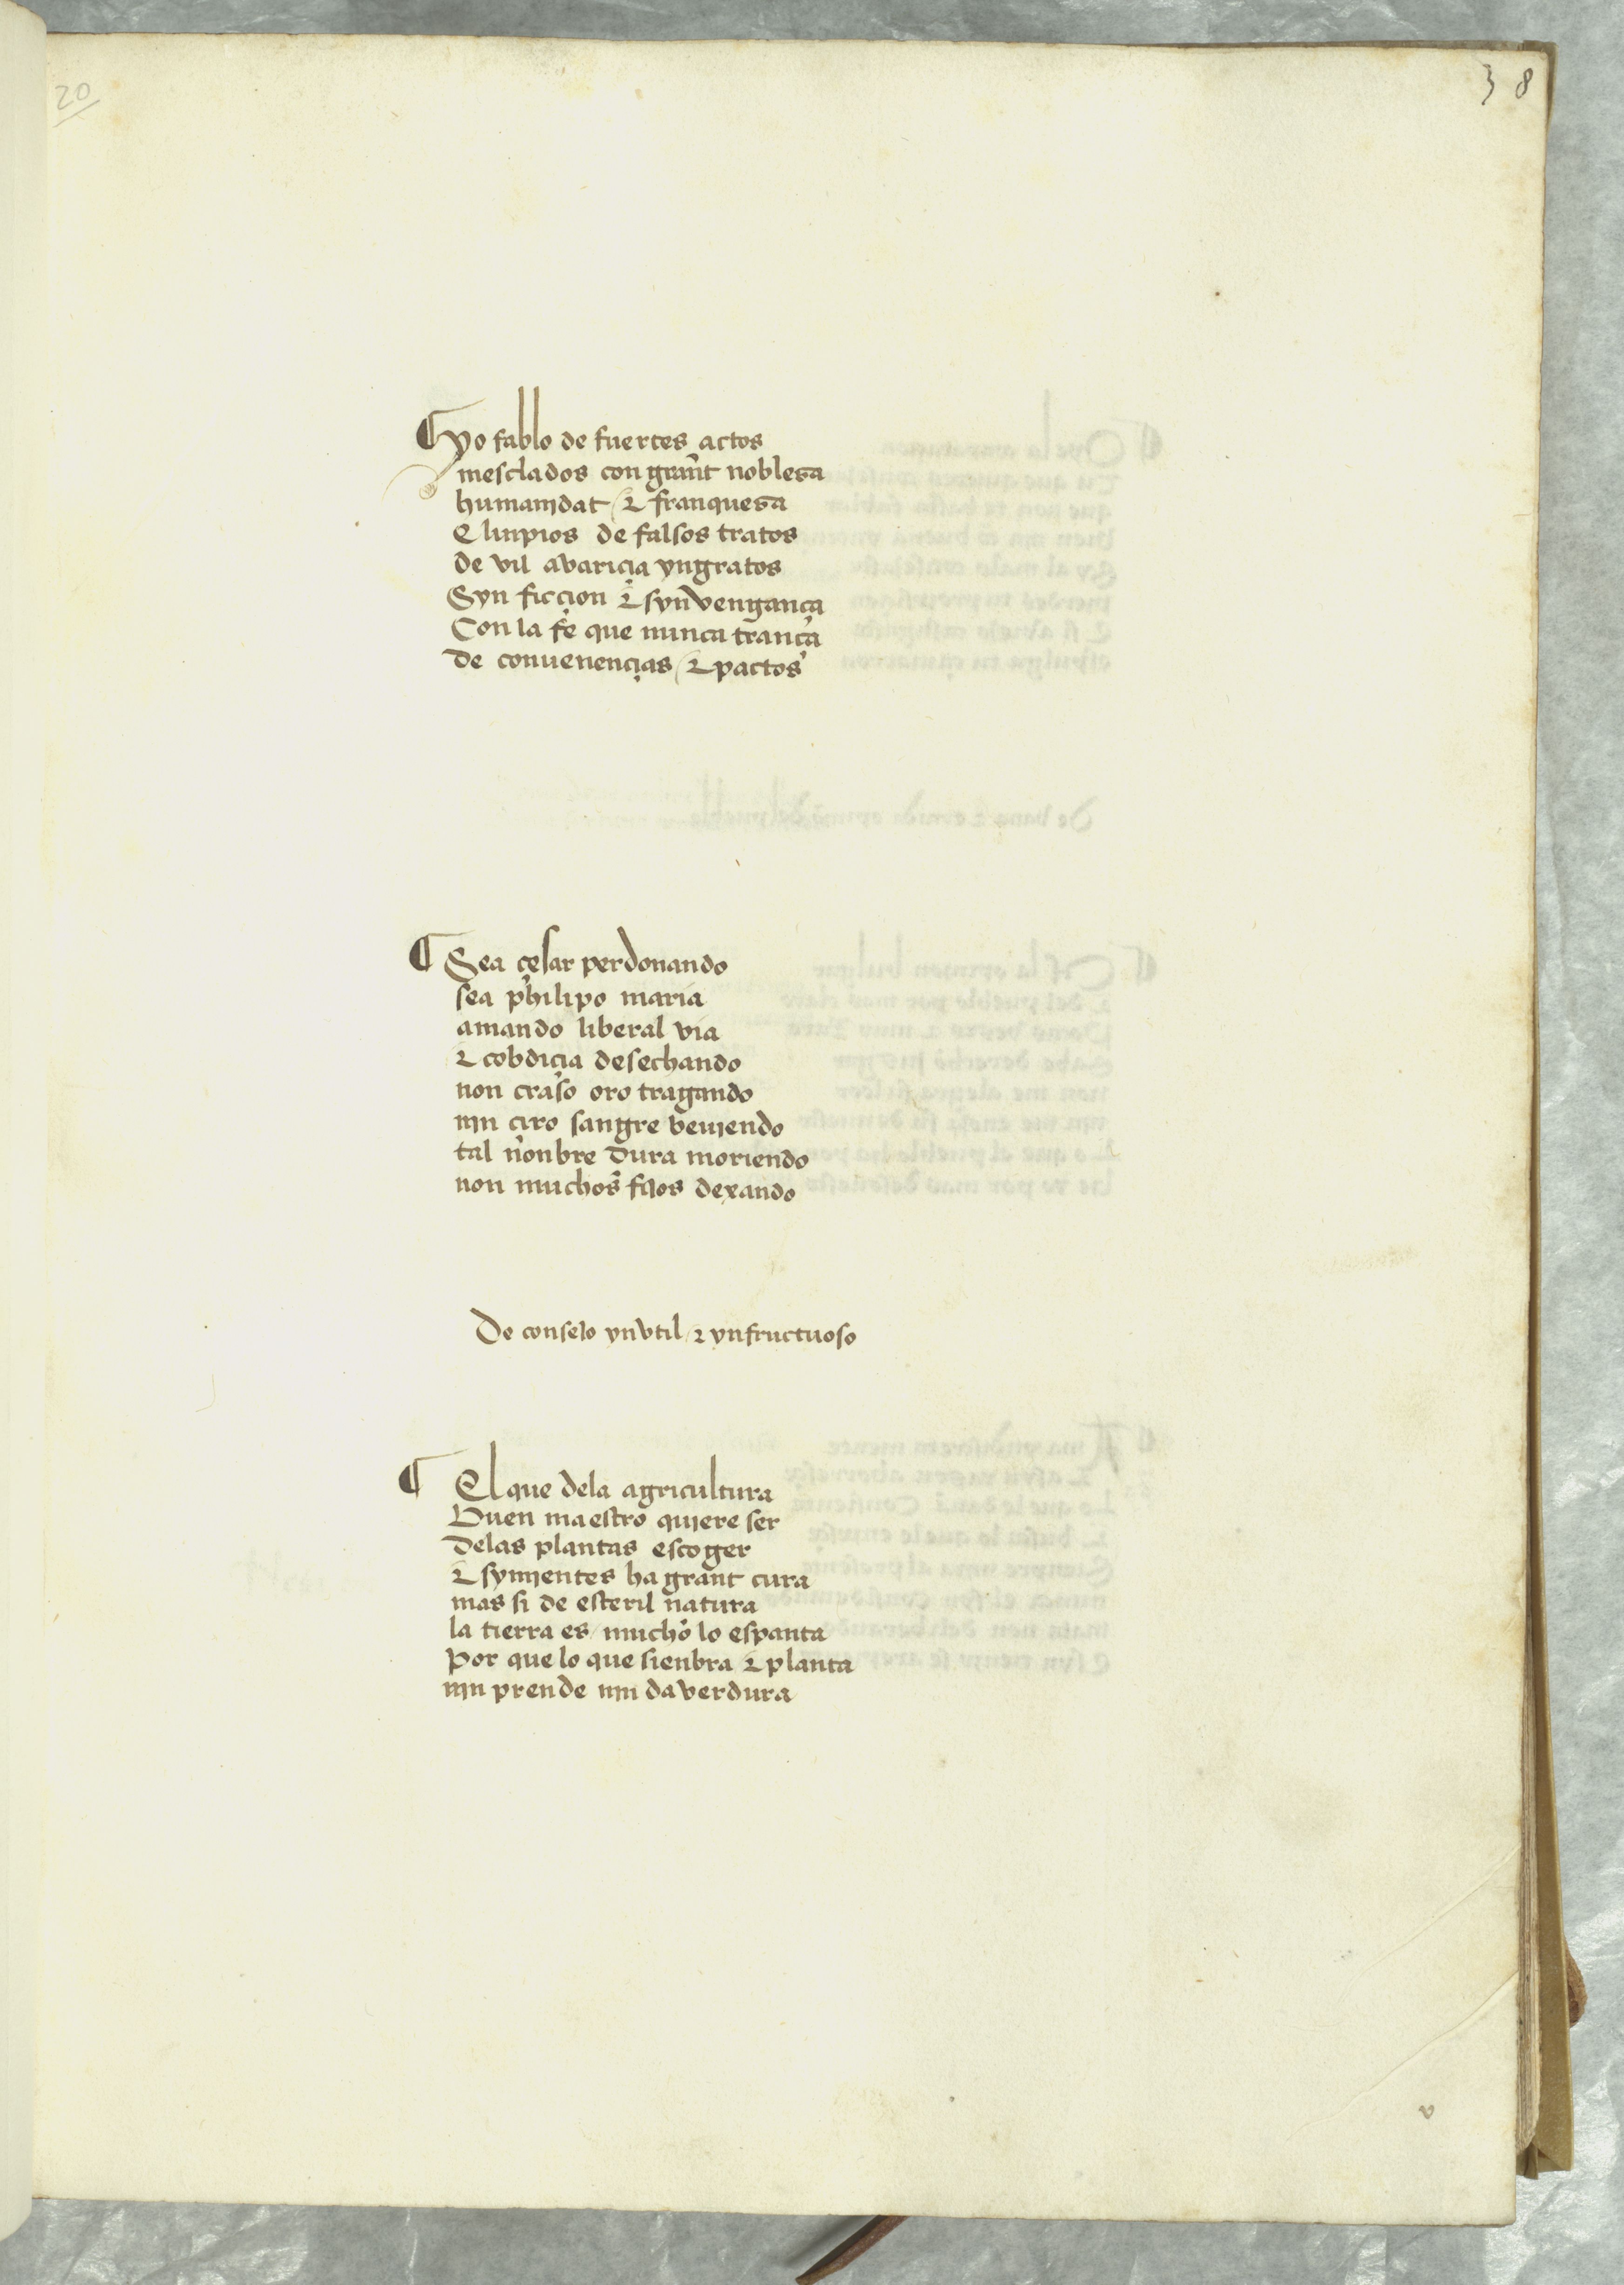 20
38
¶ yo fablo de fuertes actos
mesclados con grant noblesa
humanidat / ⁊ franquesa
E linpios de falsos tratos
de vil avariçia yngratos
Syn ficçion ⁊ syn vengança
Con la fe que nunca trança
de conuenençias / ⁊ pactos
¶ Sea çesar perdonando
sea philipo maria
amando liberal via
⁊ cobdiçia desechando
non craso oro tragando
nin ciro sangre beuiendo
tal nonbre dura moriendo
non muchos fijos dexando
De consejo ynvtil / ⁊ ynfructuoso
¶ El que dela agricultura
Buen maestro quiere ser
delas plantas escoger
⁊ symientes ha grant cura
mas si de esteril natura
la tierra es / mucho lo espanta
Por que lo que sienbra ⁊ planta
nin prende nin da verdura
v